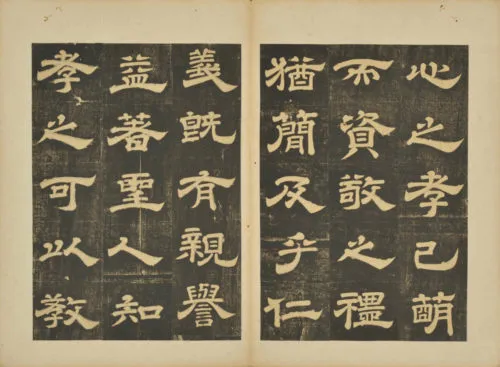 心之孝已萌
而資敬之禮
猶簡及乎仁
義既有親譽
益著聖人知
孝之可以教